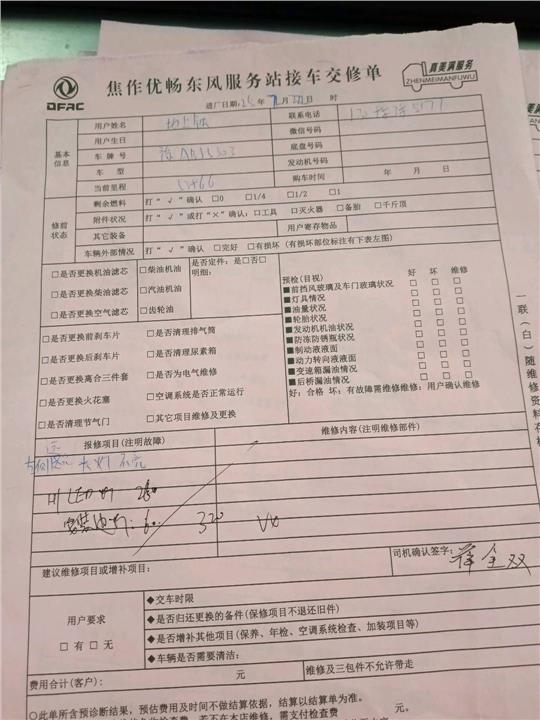 DFAC
焦作优畅东风服务站接车交修单
真美满服务
ZHENMEIMANFUWU
进厂日期: 25年 月 日 时
基本信息
用户姓名
联系电话
用户生日
微信号码
车牌号
底盘号码
车型
发动机号码
当前里程
购车时间 年 月 日
修前状态
剩余燃料 打“√”确认 □0 □1/4 □1/2 □1
附件状况 打“√”或打“×”确认: □工具 □灭火器 □备胎 □千斤顶
其它装备
用户寄存物品
车辆外部情况 打“√”确认 □完好 □有损坏 (有损坏部位标注有下表左图)
□是否更换机油滤芯 □柴油机油
□是否更换柴油滤芯 □汽油机油
□是否更换空气滤芯 □齿轮油
是否定件: 是□否□
明细:
□是否更换前刹车片 □是否清理排气筒
□是否更换后刹车片 □是否清理尿素箱
□是否更换离合三件套 □是否为电气维修
□是否更换火花塞 □空调系统是否正常运行
□是否清理节气门 □其它项目维修及更换
预检(目视) 好 坏 维修
■前挡风玻璃及车门玻璃状况 □ □ □
■灯具情况 □ □ □
■油量状况 □ □ □
■轮胎状况 □ □ □
■发动机机油状况 □ □ □
■防冻防锈瓶状况 □ □ □
■制动液液面 □ □ □
■动力转向液液面 □ □ □
■变速箱漏油情况 □ □ □
■后桥漏油情况 □ □ □
好: 合格 坏: 有故障需维修维修: 用户确认维修
一联(白)随维修资料存档
报修项目(注明故障)
维修内容(注明维修部件)
大灯不亮
H1 LED灯 260
安装边灯: 60
320
建议维修项目或增补项目:
司机确认签字:
用户要求
□有 □无
◆交车时限
◆是否归还更换的备件(保修项目不退还旧件)
◆是否增补其他项目(保养、年检、空调系统检查、加装项目等)
◆车辆是否需要清洁:
费用合计(客户): 元
维修及三包件不允许带走
○此单所含预诊断结果, 预估费用及时间不做结算依据, 结算以结算单为准。